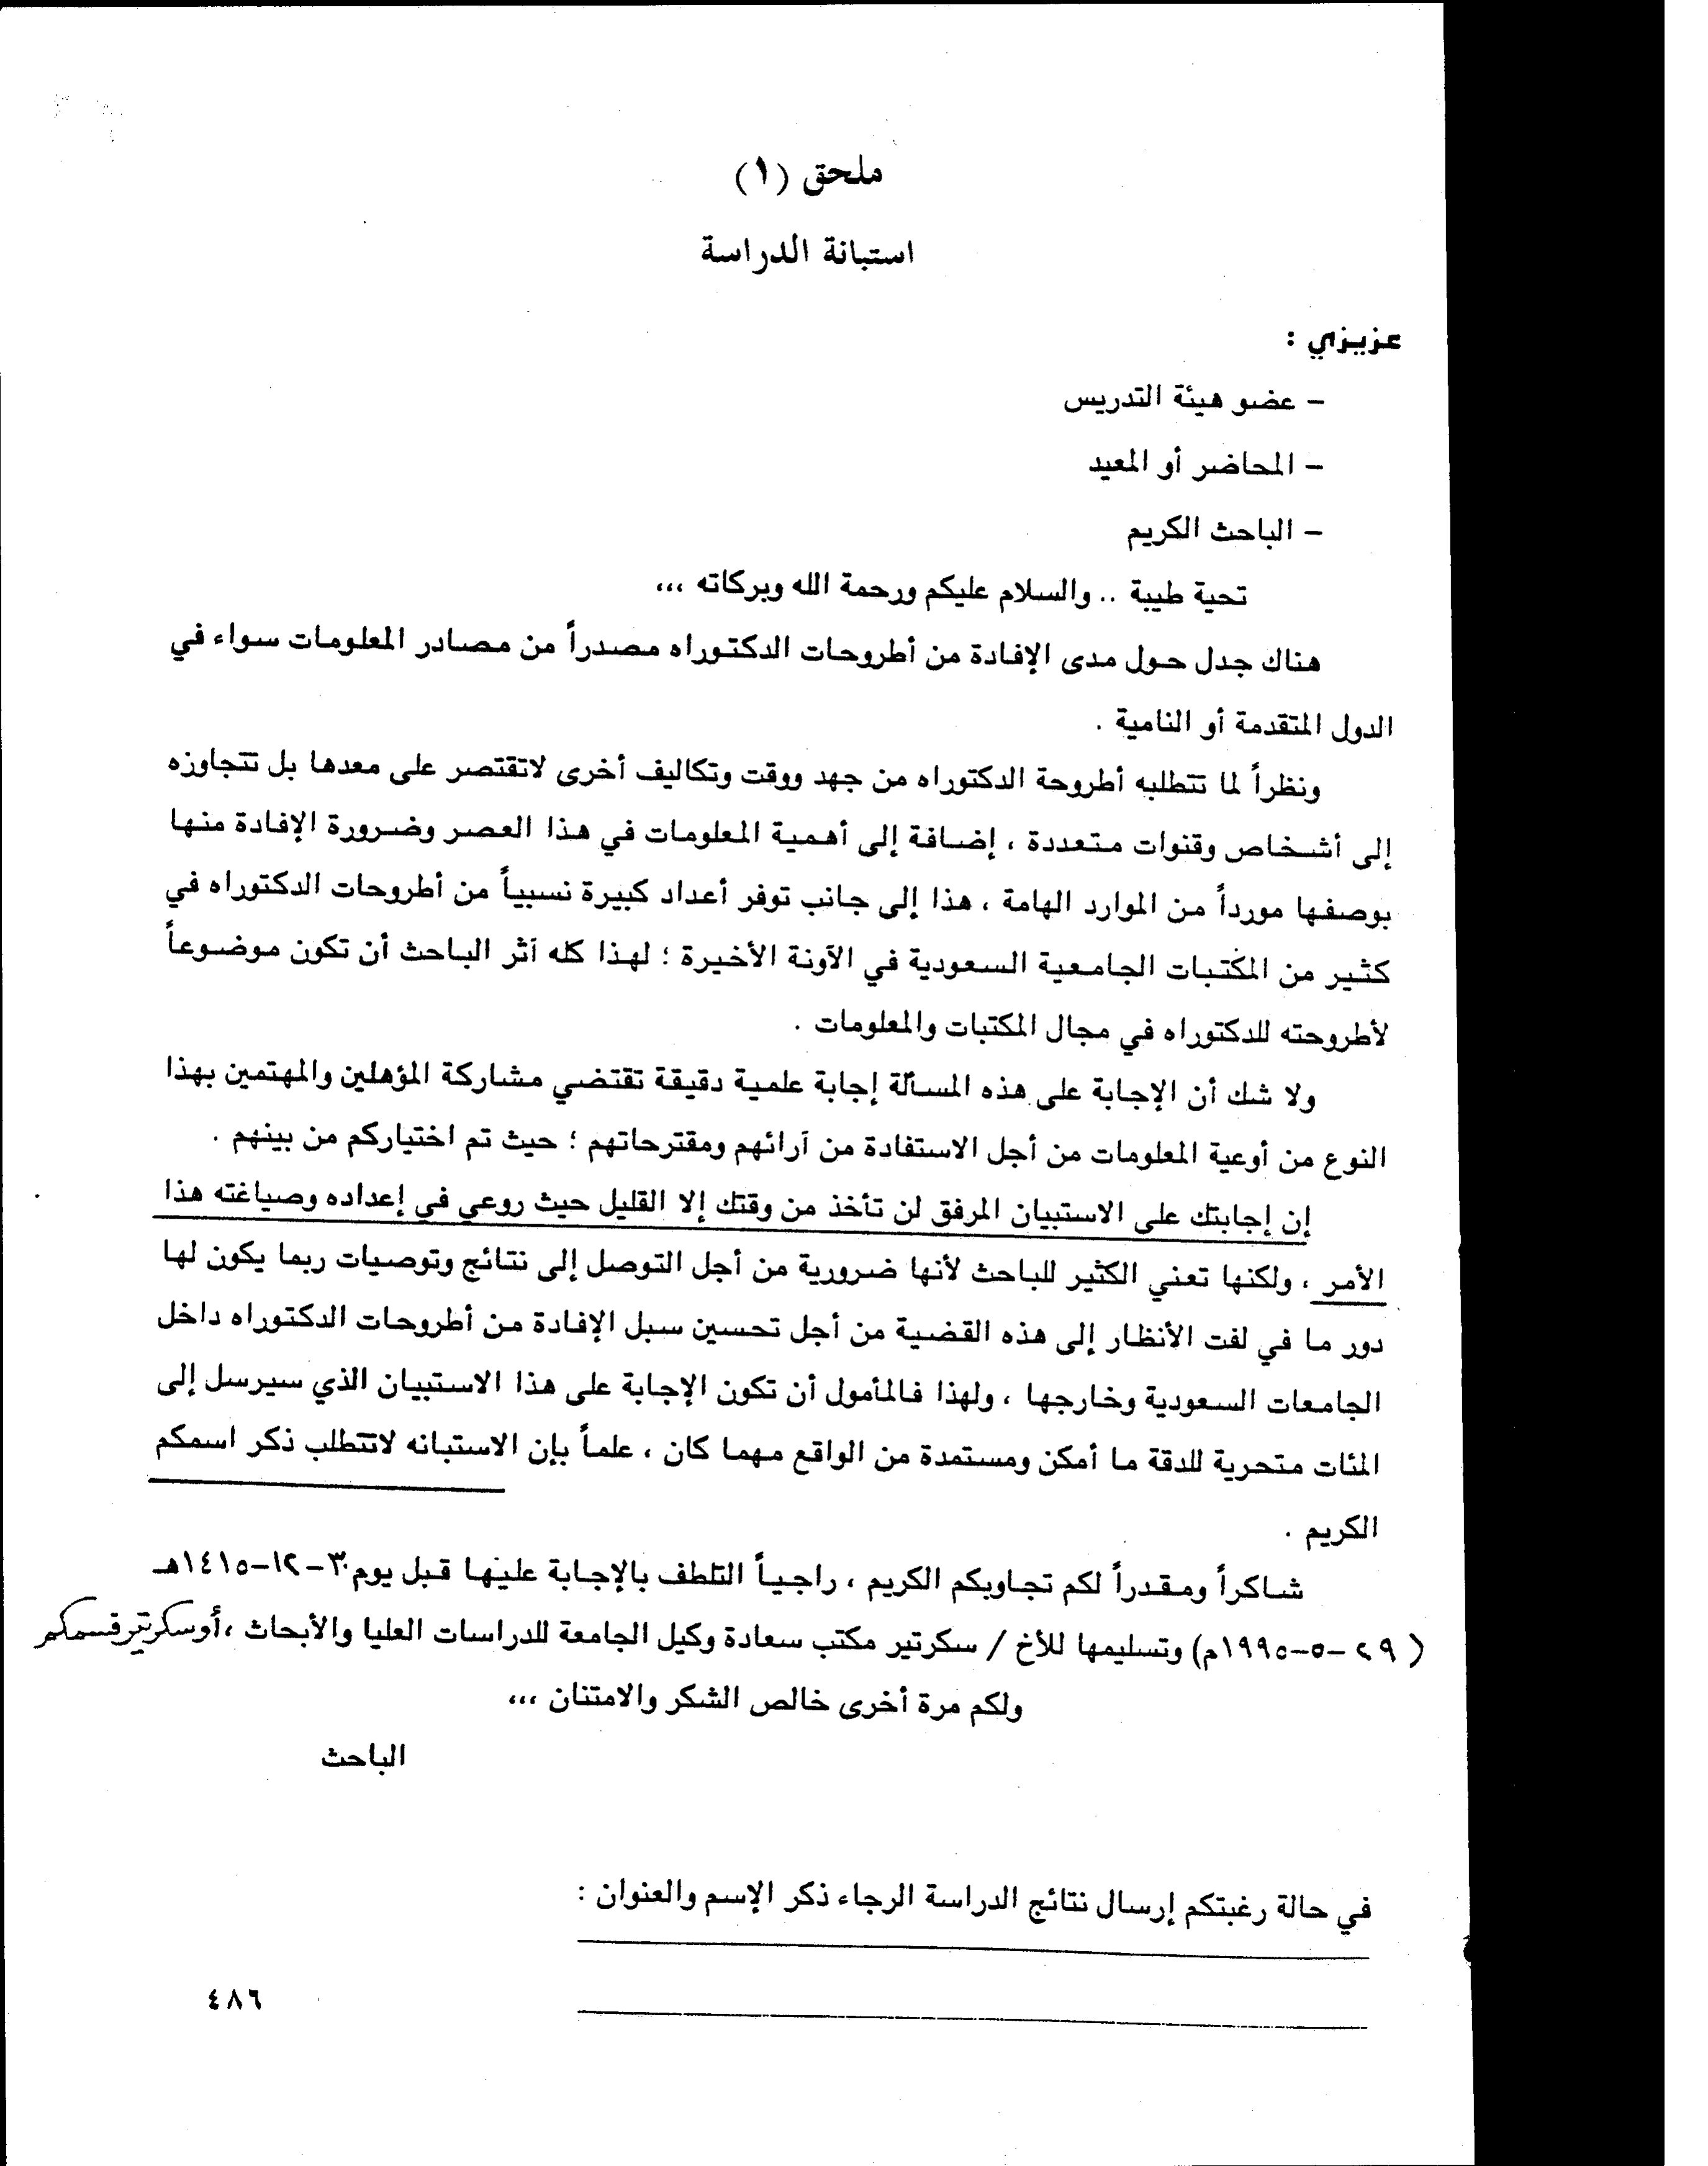 ملحق (١)
استبانة الدراسة
عزيزي :
– عضو هيئة التدريس
– المحاضر أو المعيد
– الباحث الكريم
تحية طيبة .. والسلام عليكم ورحمة الله وبركاته ،،،
هناك جدل حول مدى الإفادة من أطروحات الدكتوراه مصدراً من مصادر المعلومات سواء في
الدول المتقدمة أو النامية .
ونظراً لما تتطلبه أطروحة الدكتوراه من جهد ووقت وتكاليف أخرى لاتقتصر على معدها بل تتجاوزه
إلى أشخاص وقنوات متعددة ، إضافة إلى أهمية المعلومات في هذا العصر وضرورة الإفادة منها
بوصفها مورداً من الموارد الهامة ، هذا إلى جانب توفر أعداد كبيرة نسبياً من أطروحات الدكتوراه في
كثير من المكتبات الجامعية السعودية في الآونة الأخيرة ؛ لهذا كله آثر الباحث أن تكون موضوعاً
لأطروحته للدكتوراه في مجال المكتبات والمعلومات .
ولا شك أن الإجابة على هذه المسألة إجابة علمية دقيقة تقتضي مشاركة المؤهلين والمهتمين بهذا
النوع من أوعية المعلومات من أجل الاستفادة من آرائهم ومقترحاتهم ؛ حيث تم اختياركم من بينهم .
إن إجابتك على الاستبيان المرفق لن تأخذ من وقتك إلا القليل حيث روعي في إعداده وصياغته هذا
الأمر ، ولكنها تعني الكثير للباحث لأنها ضرورية من أجل التوصل إلى نتائج وتوصيات ربما يكون لها
دور ما في لفت الأنظار إلى هذه القضية من أجل تحسين سبل الإفادة من أطروحات الدكتوراه داخل
الجامعات السعودية وخارجها ، ولهذا فالمأمول أن تكون الإجابة على هذا الاستبيان الذي سيرسل إلى
المئات متحرية للدقة ما أمكن ومستمدة من الواقع مهما كان ، علماً بإن الاستبانه لاتتطلب ذكر اسمكم
الكريم .
شاكراً ومقدراً لكم تجاوبكم الكريم ، راجياً التلطف بالإجابة عليها قبل يوم ٣٠–١٢–١٤١٥هـ
( ٢٩ –٥–١٩٩٥م) وتسليمها للأخ / سكرتير مكتب سعادة وكيل الجامعة للدراسات العليا والأبحاث ، أو سكرتير قسمكم
ولكم مرة أخرى خالص الشكر والامتنان ،،،
الباحث
في حالة رغبتكم إرسال نتائج الدراسة الرجاء ذكر الإسم والعنوان :
٤٨٦